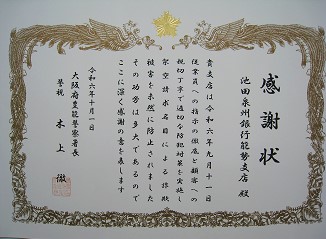 感謝状
池田泉州銀行能勢支店 殿
貴支店は令和六年九月十一日
従業員への指示の徹底と顧客への
親切丁寧で適切な防犯対策を実施し
架空請求名目による詐欺
被害を未然に防止されました
その功労は多大であるので
ここに深く感謝の意を表します
令和六年十月一日
大阪府豊能警察署長
警視 木上 徹